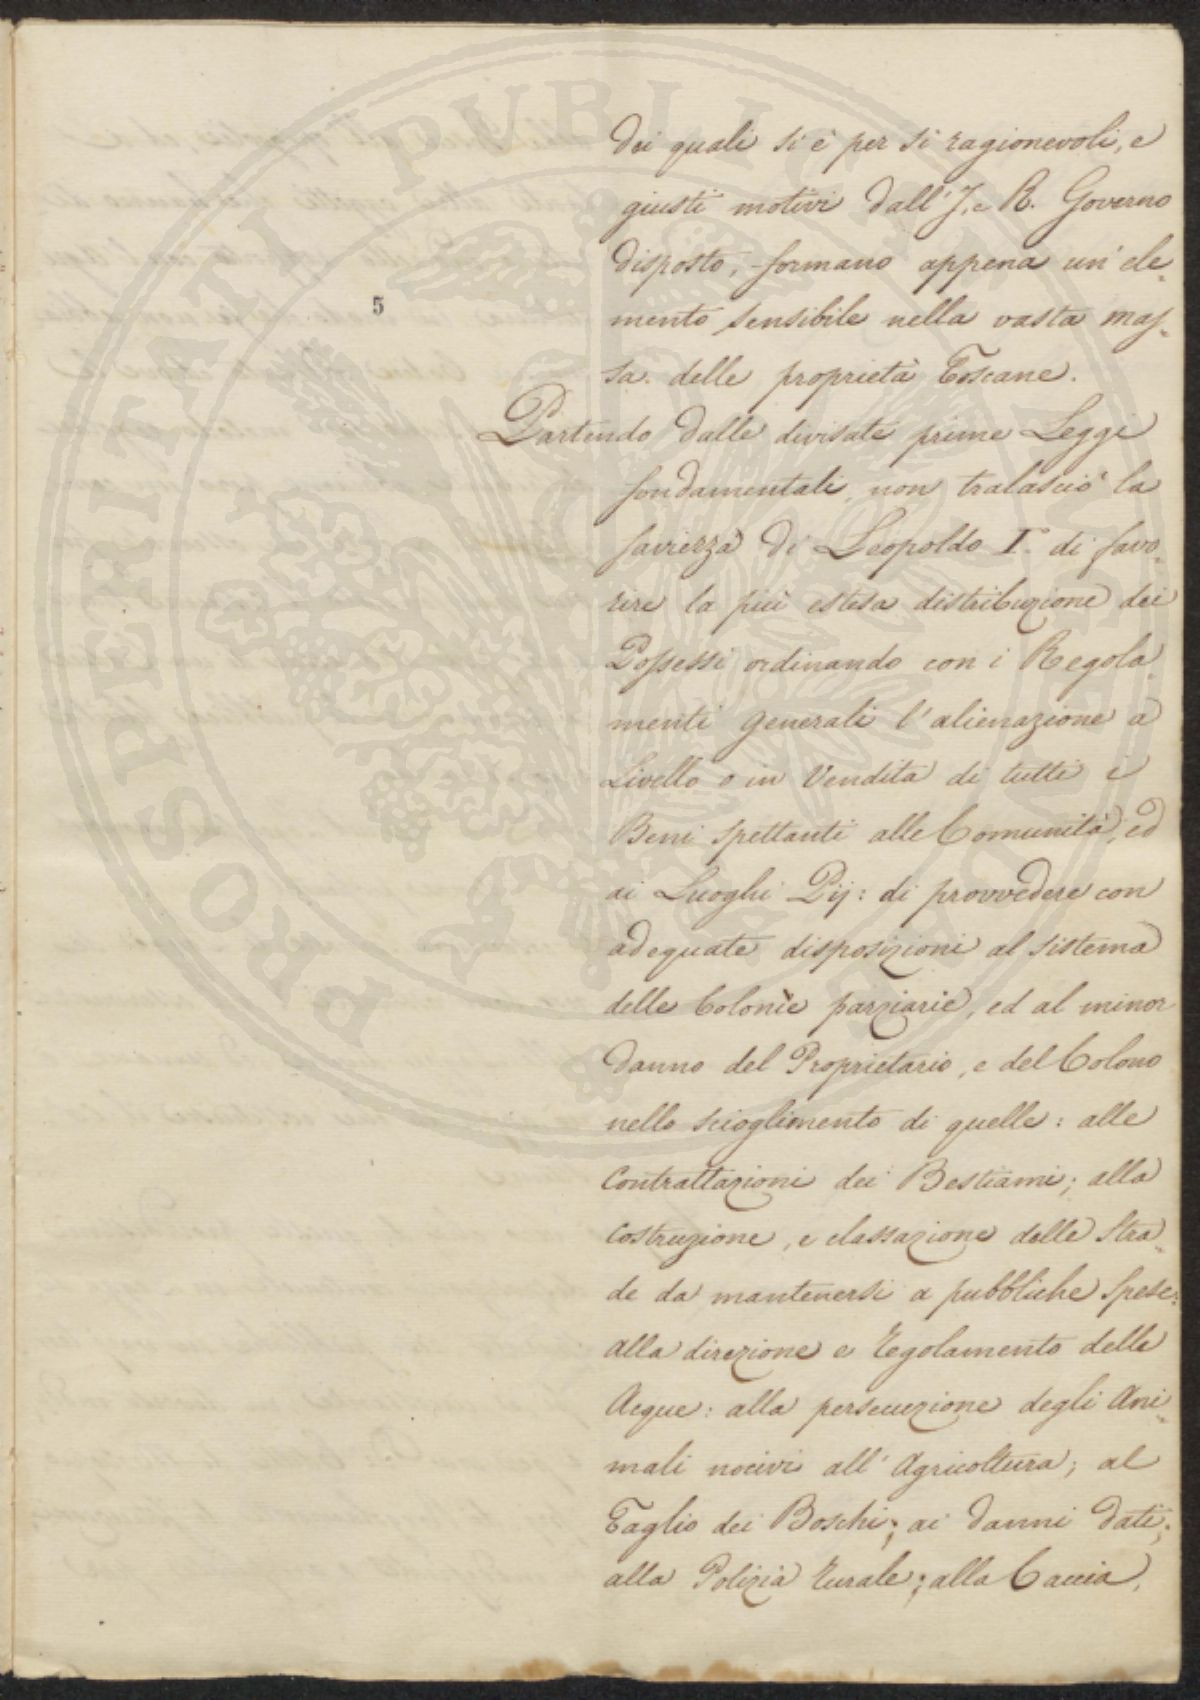 PROSPERITATI PUBLICAE
5
dei quali si è per sì ragionevoli, e
giusti motivi dall'J. e R. Governo
disposto, formano appena un' ele-
mento sensibile nella vasta mas-
sa delle proprietà Toscane.
Partendo dalle divisate prime Leggi
fondamentali non tralasciò la
saviezza di Leopoldo I.° di favo-
rire la più estesa distribuzione dei
Possessi ordinando con i Regola-
menti generali l'alienazione a
Livello o in Vendita di tutti i
Beni spettanti alle Comunità, ed
ai Luoghi Pij: di provvedere con
adeguate disposizioni al sistema
delle Colonìe parziarie, ed al minor
danno del Proprietario, e del Colono
nello scioglimento di quelle: alle
Contrattazioni dei Bestiami; alla
costruzione, e classazione delle Stra-
de da mantenersi a pubbliche Spese:
alla direzione e regolamento delle
Acque: alla persecuzione degli Ani-
mali nocivi all' Agricoltura; al
Taglio dei Boschi; ai danni dati;
alla Polizia rurale; alla Caccia,